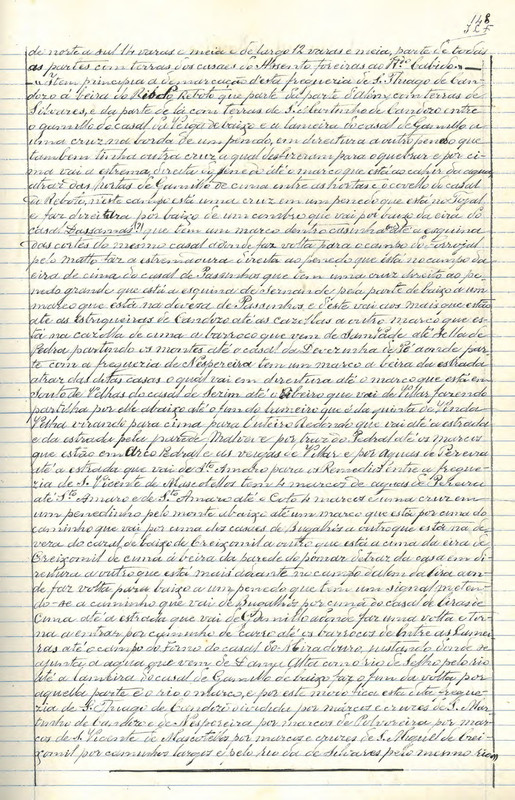 148
de norte a sul 14 varas e meia e de largo 12 varas e meia, parte de todas
as partes com terras dos casaes do Assento foreiras ao Rdo Cabido. —
Item principia a demarcação d'esta freguezia de S. Thiago de Can-
dozo á beira do Rebote que parte da parte com terras de
Silvares, e da parte de lá com terras de S. Martinho de Candozo entre
o do casal da Veiga de baixo e a lameira do casal de Gamillo a
uma cruz na borda de um penedo, em direitura a outro penedo que
tambem tinha outra cruz a qual desfizeram para o quebrar e por ci-
ma vai a estrema direita do penedo até o marco que está ao cahir da agua
atraz das hortas de Gamillo de cima entre as hortas e o covello do casal
de Reboto, neste campo está uma cruz em um penedo que está no
e faz direitura por baixo de um combro que vai por baixo da eira do
casal que tem um marco dentro até a esquina
das cortes do mesmo casal adonde faz volta para o campo do
pelo matto faz a estremadoura direita ao penedo que está no campo da
eira de cima do casal de Passinhos que tem uma cruz direito ao pe-
nedo grande que está a esquina de pela parte de baixo a um
marco que está na deveza de Passinhos, e d'este vai aos mais que estão
até as de Candozo até as cazellas a outro marco que es-
tá na cazella de cima a barroco que vem de até Sella de
Pedra partindo os montes até o casal da Devezinha de Pé aonde par-
te com a freguezia de Nespereira tem um marco a beira da estrada
atraz das ditas casas o qual vai em direitura até o marco que está em
Souto de Velhas do casal de Serim até o ribeiro que vai de Villar fazendo
partilha por elle abaixo até o fundo lameiro que é da quinta de
Velha virando para cima para Outeiro Redondo que vai até a estrada
e da estrada pela parede e por traz do Pedral até os marcos
que estão em Arco Pedral e as vessadas de Villar e por Aguas de Pereira
até a estrada que vai de Sto Amaro para os Remedios entre a fregue-
zia de S. Vicente de Mascotellos tem 4 marcos de aguas de Pereira
até Sto Amaro e de Sto Amaro até o Coto 4 marcos e uma cruz em
um penedinho pelo monte abaixo até um marco que está por cima do
caminho que vai por cima dos casaes de Bugalhós a outro que está na de-
veza do casal de baixo de Creixomil a outro que está a cima da eira de
Creixomil de cima á beira da parede do pomar detraz da casa em di-
reitura a outro que está mais adiante no campo da eira aon-
de faz volta para baixo a um penedo que tem um signal meten-
do-se a caminho que vai de Bugalhós por cima do casal de Eiras de
Cima até a estrada que vai de Damillo aonde faz uma volta e tor-
na a entrar por caminho de carro até os barrocos de Entre as Lamei-
ras até o campo do forno do casal do Miradouro, justando donde se
ajunta a agua que vem de Lange Alta com o rio de Selho pelo rio
até a lameira do casal de Gamillo de baixo faz o fim da volta, por
aquella parte é o rio o marco, e por este modo fica esta dita fregue-
zia de S. Thiago de Candozo dividida por marcos e cruzes de S. Mar-
tinho de Candozo e de Nespereira por marcos de Polvoreira por mar-
cos de S. Vicente de Mascotellos por marcos e cruzes de S. Miguel de Crei-
xomil por caminhos largos e pelo rio do de Silvares pelo mesmo rio